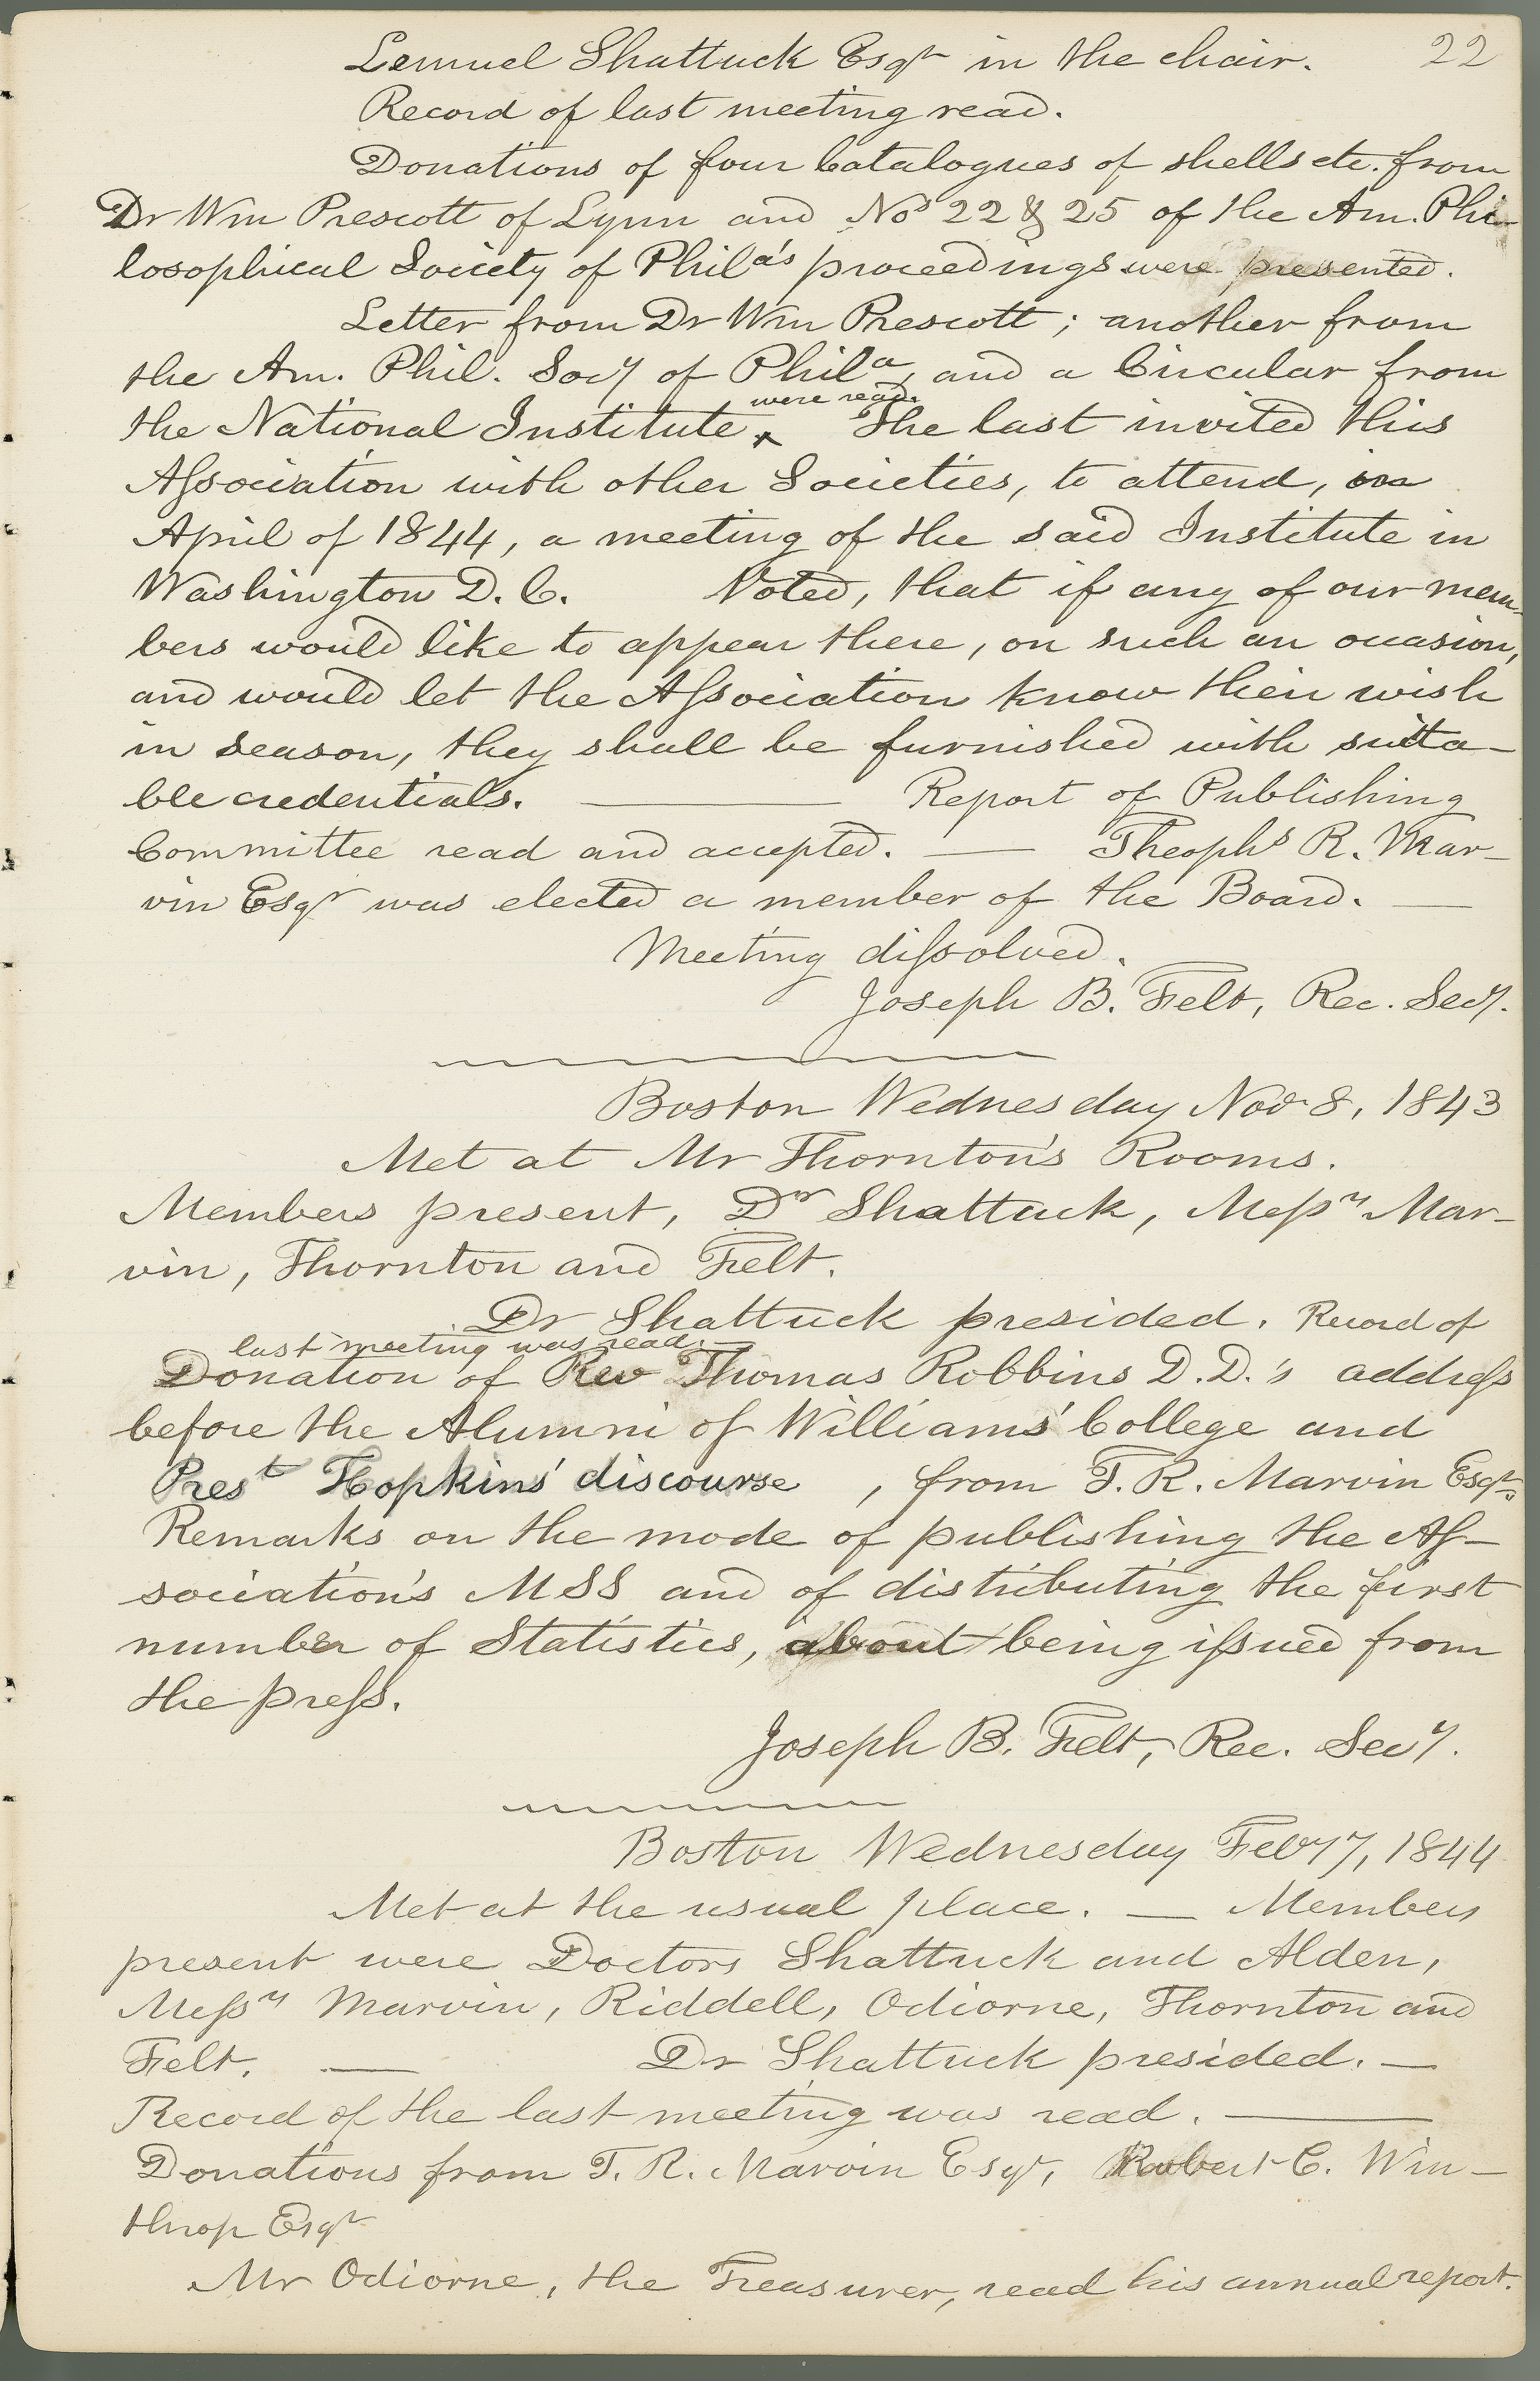 22
Lemuel Shattuck Esqr in the chair.
Record of last meeting read.
Donations of four Catalogues of shells etc. from
Dr Wm Prescott of Lynn and Nos 22 & 25 of the Am. Phi-
losophical Society of Phila's proceedings were presented.
Letter from Dr Wm Prescott; another from
the Am. Phil. Socy of Phila, and a Circular from
were read.
the National Institute ‸ The last invited this
Aſsociation with other Societies, to attend, in
April of 1844, a meeting of the said Institute in
Washington D. C. Voted, that if any of our mem-
bers would like to appear there, on such an occasion,
and would let the Aſsociation know their wish
in season, they shall be furnished with suita-
ble credentials. — Report of Publishing
Committee read and accepted. — Theophs R. Mar-
vin Esqr was elected a member of the Board. —
Meeting diſsolved.
Joseph B. Felt, Rec. Secy.
Boston Wednesday Nov 8, 1843
Met at Mr Thornton's Rooms.
Members present, Dr Shattuck, Meſsrs Mar-
vin, Thornton and Felt.
Dr Shattuck presided. Record of
last meeting was read.
Donation of Rev Thomas Robbins D.D.'s addreſs
before the Alumni of Williams' College and
Prest Hopkins' discourse, from T. R. Marvin Esqr.
Remarks on the mode of publishing the Aſ-
sociation's MSS and of distributing the first
number of Statistics, about being iſsued from
the preſs.
Joseph B. Felt, Rec. Secy.
Boston Wednesday Feby 7, 1844
Met at the usual place. — Members
present were Doctors Shattuck and Alden,
Meſsrs Marvin, Riddell, Odiorne, Thornton and
Felt. — Dr Shattuck presided. —
Record of the last meeting was read. —
Donations from T. R. Marvin Esqr, Robert C. Win-
throp Esqr
Mr Odiorne, the Treasurer, read his annual report.